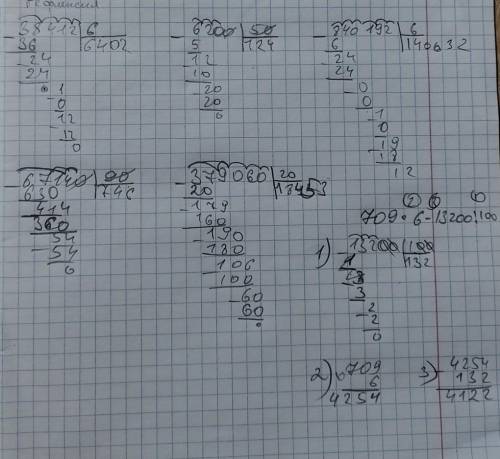 38412 6
36 6402
24
24
0 1
0
12
12
0
6200 50
5 124
12
10
20
20
0
840192 6
6 140032
24
24
0
0
1
0
19
18
12
67140 90
630 746
414
360
54
54
0
379060 20
20 18953
179
160
190
180
106
100
60
60
0
709·6-13200:100
1) 13200 100
132
3
3
2
2
0
2) 709
6
4254
3) 4254
132
4122